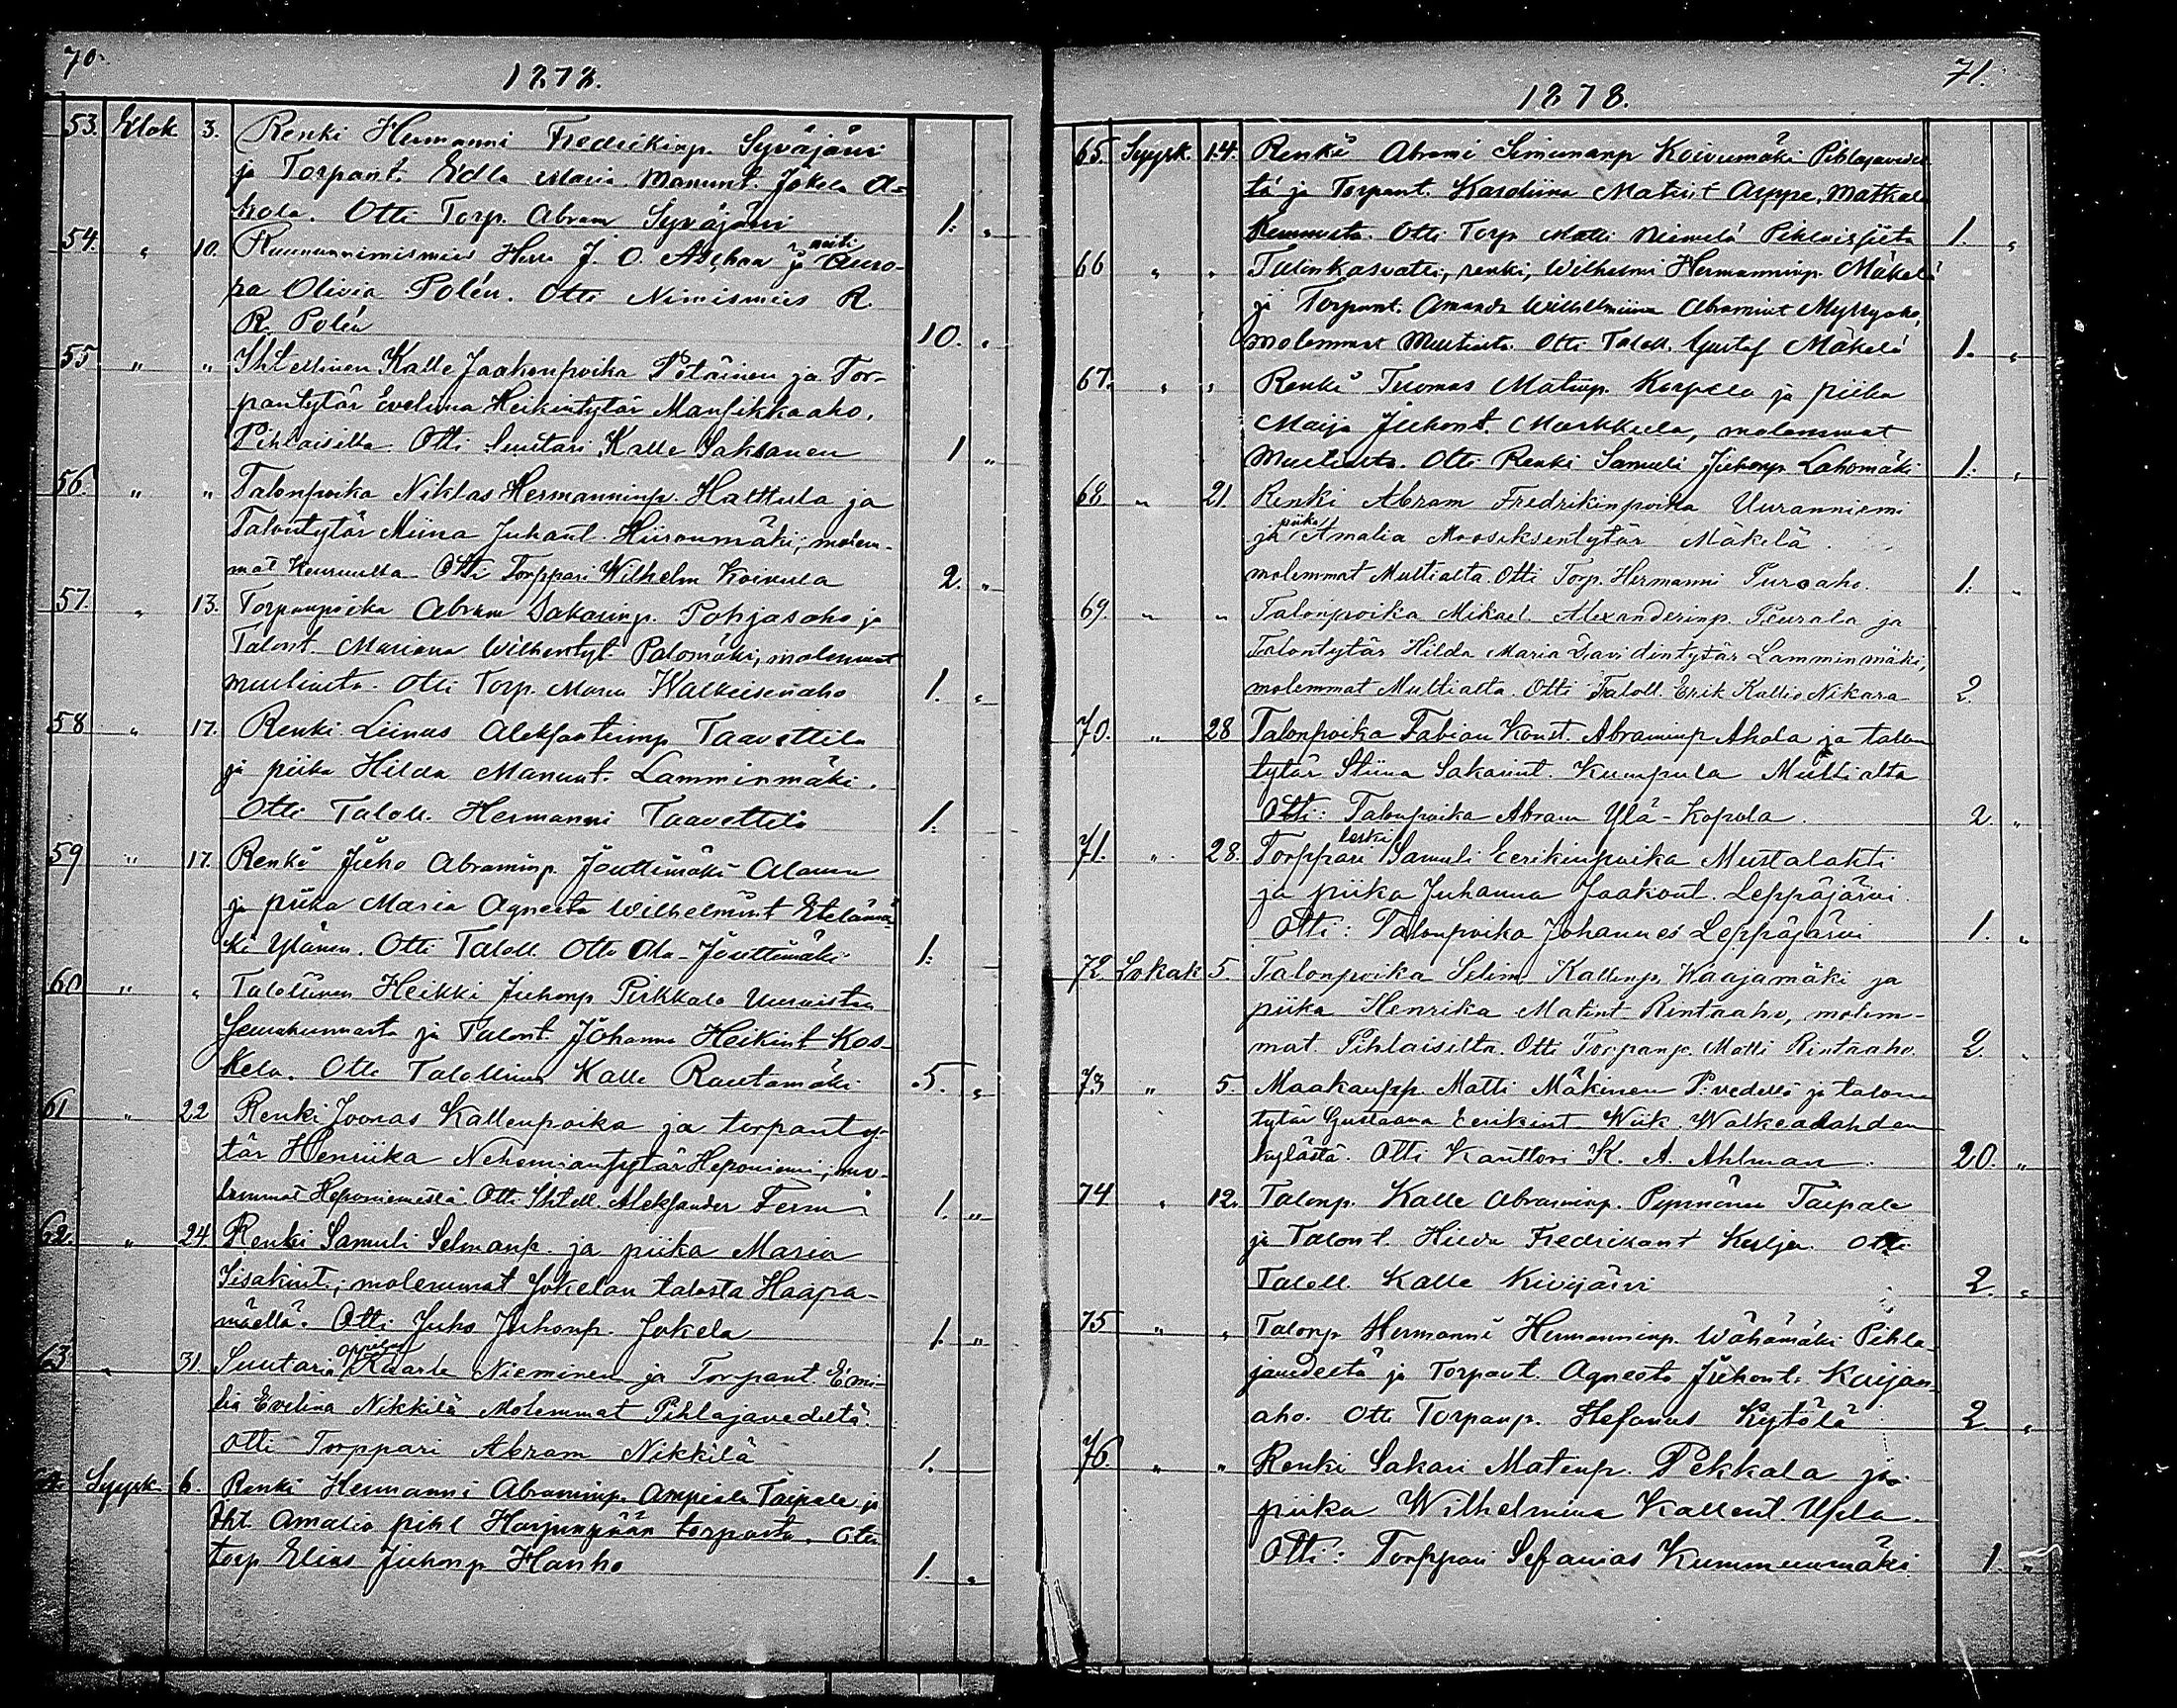 70.
1878.
53. Elok. 3. Renki Hermanni Fredrikinp. Syväjärvi
ja Torpant. Edla Maria Manunt. Jokela A-
hola. Otti Torp. Abram Syväjärvi 1. "
54. " 10. Ruununnimismies Herra J. O. Aschan ja neiti Auro-
ra Olivia Polén. Otti Nimismies R.
R. Polén 10. "
55 " " Ihtellinen Kalle Jaakonpoika Pötäinen ja Tor-
pantytär Evelina Heikintytär Mansikkaaho,
Pihlaisilta. Otti Suutari Kalle Saksanen 1 "
56. " " Talonpoika Niklas Hermanninp. Hattula ja
Talontytär Miina Juhant. Hiironmäki; molem-
mat Keuruulta. Otti Torppari Wilhelm Koivula 2. "
57. " 13. Torpanpoika Abram Sakarinp. Pohjasaho ja
Talont. Mariana Wilhemtyt. Palomäki, molemmat
multiasta. Otti Torp. Manu Walkeisenaho 1. "
58 " 17. Renki Liinus Aleksanterinp Taavettila
ja piika Hilda Manunt. Lamminmäki.
Otti Taloll. Hermanni Taavettila 1.
59 " 17. Renki Juho Abraminp. Jouttimäki Alanen
ja piika Maria Agneeta Wilhelmint Etelämä-
ki Ylänen. Otti Taloll. Otto Ala-Jouttimäki 1.
60 " " Talollinen Heikki Juhonp Pirkkala
Seurakunnasta ja Talont. Johanna Heikint Kos-
kela. Otti Talollinen Kalle Rautamäki 5. "
61 " 22 Renki Joonas Kallenpoika ja torpanty-
tär Henriika Nehemiantytär Heponiemi; mo-
lemmat Heponiemestä Otti Ihtell. Aleksander Fermi 1. "
62. " 24 Renki Samuli Selmanp. ja piika Maria
Iisakint.; molemmat Jokelan talosta Haapa-
mäellä. Otti Juho Juhonp. Jokela 1. "
63 " 31. Suutarin oppilas Kaarle Nieminen ja Torpant. Emi-
lia Evelina Nikkilä Molemmat Pihlajavedeltä.
Otti Torppari Abram Nikkilä 1.
64. Syysk. 6. Renki Hermanni Abraminp. Ampiala Taipale ja
Iht. Amalia Pihl Harjunpään torpasta. Otti
torp Elias Juhonp Hanho 1. "
71.
1878.
65. Syysk. 14. Renki Abrami Simunanp Koivumäki Pihlajavedel-
tä ja Torpant. Karoliina Matint Arppe, Matkala
Keuruulta. Otti Torp Matti Niemelä Pihlaisista 1. "
66 " " Talonkasvatti, renki, Wilhelmi Hermanninp. Mäkelä
ja Torpant. Amanda Wilhelmiina Abramint Myllyaho,
molemmat Multiasta. Otti Taloll. Gustaf Mäkelä 1. "
67. " " Renki Tuomas Matinp. Korpela ja piika
Maija Juhont. Markkula, molemmat
Multiasta. Otti Renki Samuli Juhonp. Lahomäki 1. "
68. " 21. Renki Abram Fredrikinpoika Uuranniemi
ja piika Amalia Mooseksentytär Mäkelä.
molemmat Multialta. Otti Torp. Hermanni Puroaho. 1. "
69. " " Talonpoika Mikael Alexanderinp. Peurala ja
Talontytär Hilda Maria Davidintytär Lamminmäki,
molemmat Multialta. Otti Taloll. Erik Kallio Nikara 2.
70. " 28 Talonpoika Fabian Konst. Abraminp Ahola ja talon
tytär Stiina Sakarint. Kumpula Multialta
Otti: Talonpoika Abram Ylä-Kopola 2. "
71. " 28. Torppari leski Samuli Eerikinpoika Mustalahti
ja piika Juhanna Jaakont. Leppäjärvi.
Otti: Talonpoika Johannes Leppäjärvi 1. "
72. Lokak 5. Talonpoika Selim Kallenp. Waajamäki ja
piika Henrika Matint Rintaaho, molem-
mat Pihlaisilta. Otti Torpanp. Matti Rintaaho. 2. "
73 " 5. Maakaupp. Matti Mäkinen P:vedeltä ja talon
tytär Gustaava Eerikint Wiik Walkealahden
kylästä. Otti Kanttori K. A. Ahlman. 20. "
74 " 12. Talonp. Kalle Abraminp. Pynnönen Taipale
ja Talont. Hilda Fredrikant Kulja. Otti
Taloll. Kalle Kivijärvi 2. "
75 " " Talonp Hermanni Hermanninp. Wähämäki Pihla-
javedeltä ja Torpant. Agneeta Juhont. Kuijan-
aho. Otti Torpanp. Stefanus Kytölä 2. "
76. " " Renki Sakari Matinp. Pekkala ja
piika Wilhelmina Kallent. Ujula.
Otti: Torppari Sefanias Kummunmäki 1. "